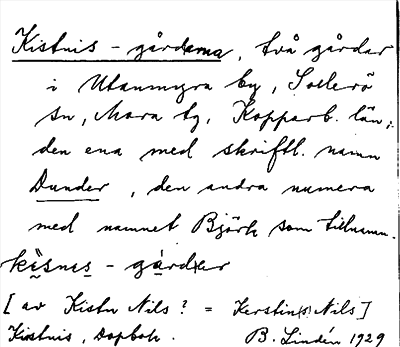 Kistnis - gårdarna, två gårdar
i Utanmyra by, Sollerö
sn, Mora tg, Kopparb. län;
den ena med skriftl. namn
Dunder, den andra numera
med namnet Björk som tillnamn.
kìsnis - gàrdær
[av Kistn Nils? = Kerstin(s) Nils]
Kistnis, Dopbok. B. Lindén 1929